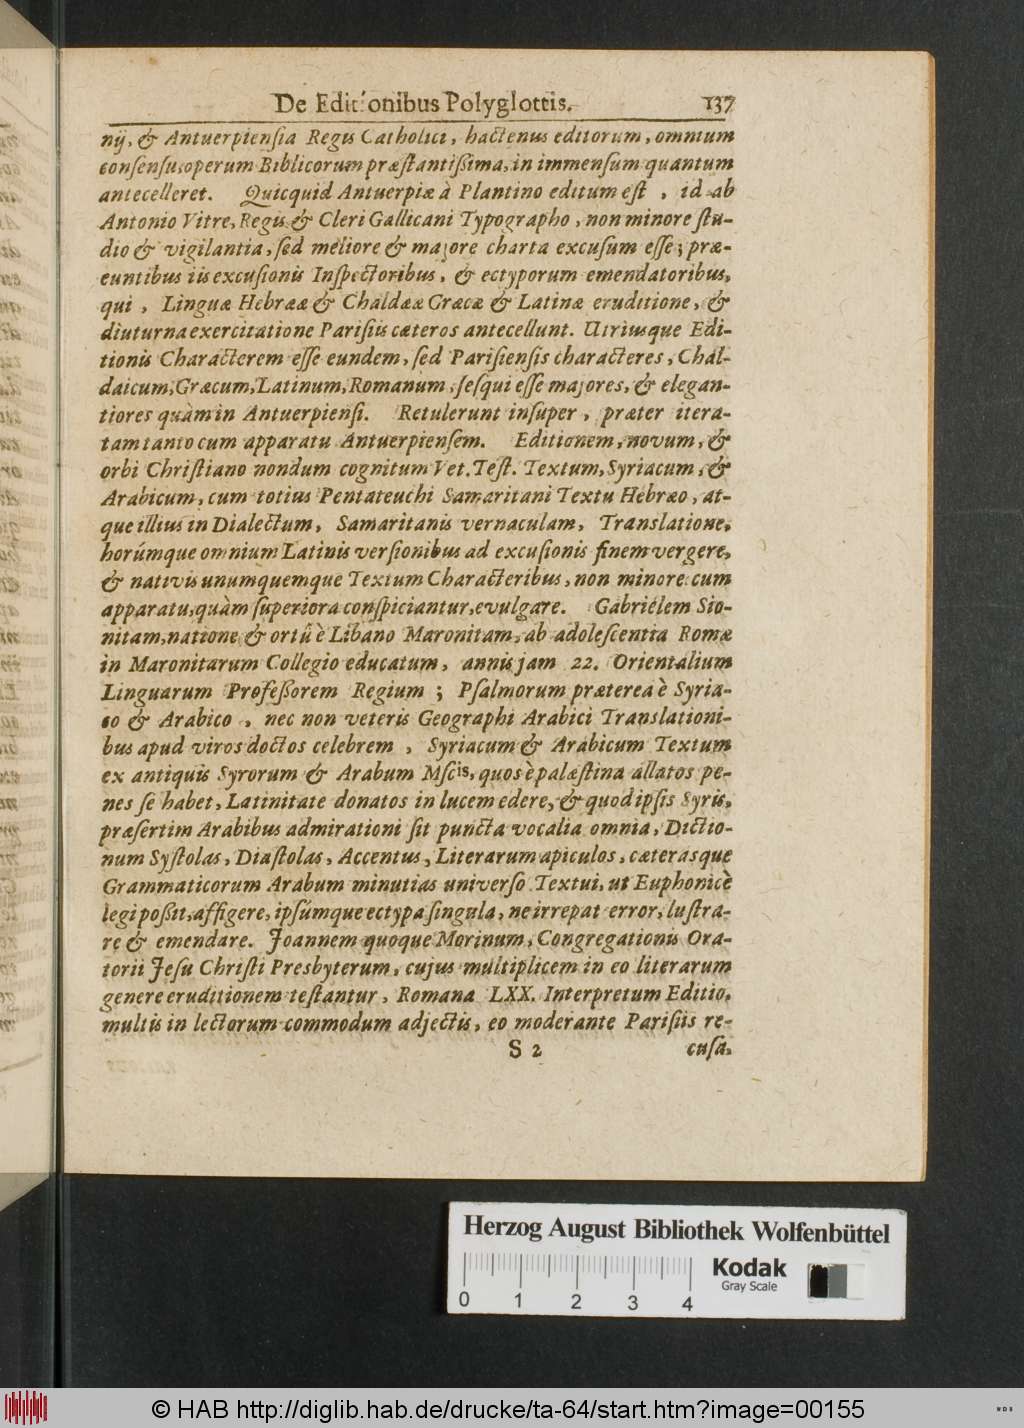 De Editionibus Polyglottis. 137
nij, & Antuerpiensia Regis Catholici, hactenus editorum, omnium
consensu, operum Biblicorum præstantißima, in immensum quantum
antecelleret. Quicquid Antuerpiæ à Plantino editum est , id ab
Antonio Vitre, Regis & Cleri Gallicani Typographo, non minore stu-
dio & vigilantia, sed meliore & majore charta excusum esse; præ-
euntibus iis excusionis Inspectoribus, & ectyporum emendatoribus,
qui , Linguæ Hebrææ & Chaldææ Græcæ & Latinæ eruditione, &
diuturna exercitatione Parisiis cæteros antecellunt. Utriusque Edi-
tionis Characterem esse eundem, sed Parisiensis characteres, Chal-
daicum, Græcum, Latinum, Romanum, sesqui esse majores, & elegan-
tiores quàm in Antuerpiensi. Retulerunt insuper , præter itera-
tam tanto cum apparatu Antuerpiensem. Editionem, novum, &
orbi Christiano nondum cognitum Vet. Test. Textum, Syriacum, &
Arabicum, cum totius Pentateuchi Samaritani Textu Hebræo, at-
que illius in Dialectum, Samaritanis vernaculam, Translatione,
horúmque omnium Latinis versionibus ad excusionis finem vergere,
& nativis unumquemque Textum Characteribus, non minore cum
apparatu, quàm superiora conspiciantur, evulgare. Gabriélem Sio-
nitam, natione & ortû è Libano Maronitam, ab adolescentia Romæ
in Maronitarum Collegio educatum, annis jam 22. Orientalium
Linguarum Profeßorem Regium ; Psalmorum præterea è Syria-
co & Arabico , nec non veteris Geographi Arabici Translationi-
bus apud viros doctos celebrem , Syriacum & Arabicum Textum
ex antiquis Syrorum & Arabum Mscis, quos è palæstina allatos pe-
nes se habet, Latinitate donatos in lucem edere, & quod ipsis Syris,
præsertim Arabibus admirationi sit puncta vocalia omnia, Dictio-
num Systolas, Diastolas, Accentus, Literarum apiculos, cæterasque
Grammaticorum Arabum minutias universo Textui, ut Euphonicè
legi poßit, affigere, ipsúmque ectypa singula, ne irrepat error, lustra-
re & emendare. Joannem quoque Morinum, Congregationis Ora-
torii Jesu Christi Presbyterum, cujus multiplicem in eo literarum
genere eruditionem testantur, Romana LXX. Interpretum Editio,
multis in lectorum commodum adjectis, eo moderante Parisiis re-
S 2 cusa,
Herzog August Bibliothek Wolfenbüttel
Kodak
Gray Scale
0 1 2 3 4
© HAB http://diglib.hab.de/drucke/ta-64/start.htm?image=00155